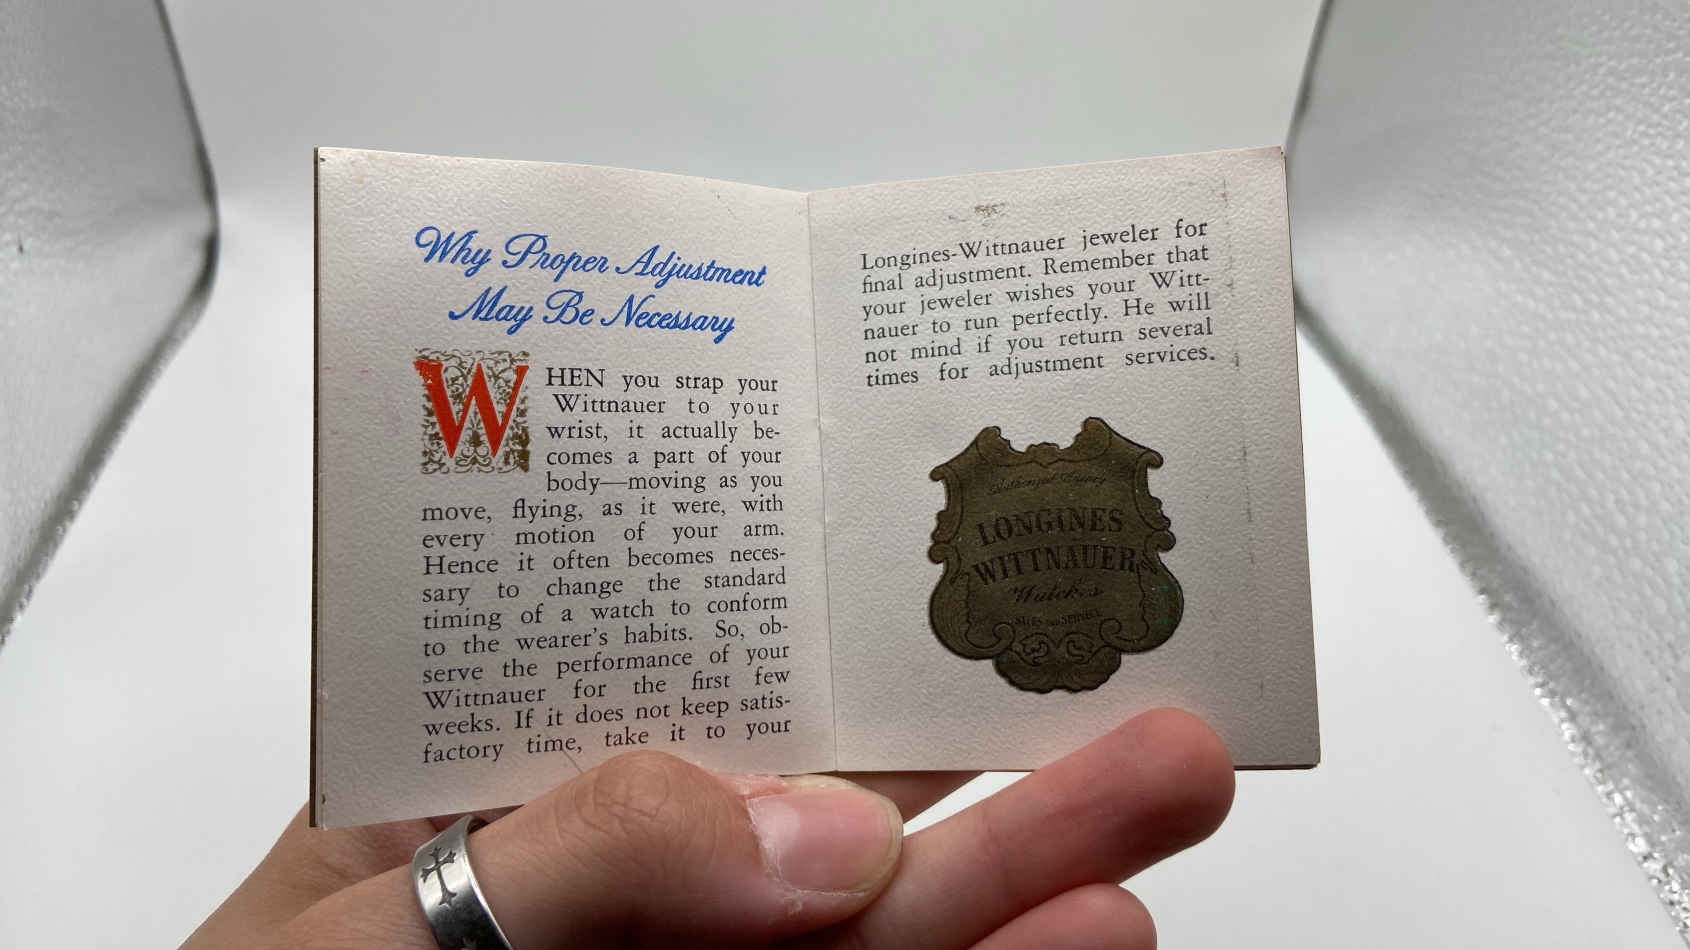 Why Proper Adjustment
May Be Necessary
WHEN you strap your
Wittnauer to your
wrist, it actually be-
comes a part of your
body—moving as you
move, flying, as it were, with
every motion of your arm.
Hence it often becomes neces-
sary to change the standard
timing of a watch to conform
to the wearer's habits. So, ob-
serve the performance of your
Wittnauer for the first few
weeks. If it does not keep satis-
factory time, take it to your
Longines-Wittnauer jeweler for
final adjustment. Remember that
your jeweler wishes your Witt-
nauer to run perfectly. He will
not mind if you return several
times for adjustment services.
LONGINES
WITTNAUER
Watches
SALES AND SERVICE